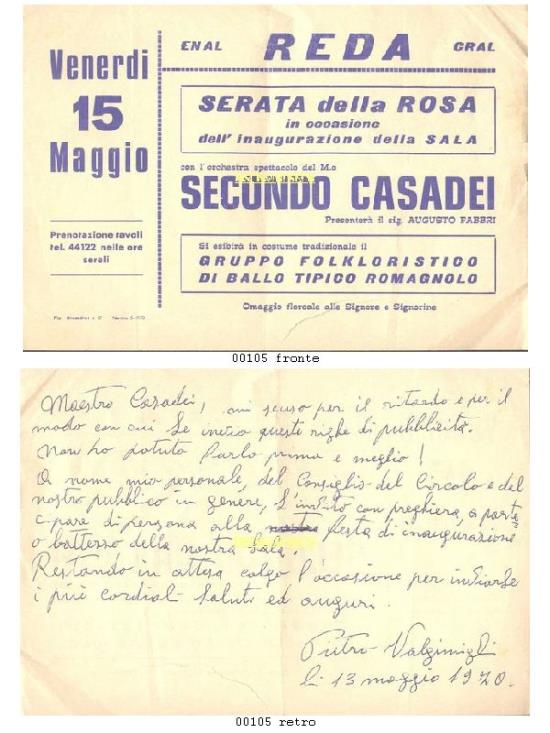 Venerdi
15
Maggio
Prenotazione tavoli
tel. 44122 nelle ore
serali
ENAL REDA CRAL
SERATA della ROSA
in occasione
dell'inaugurazione della SALA
con l'orchestra spettacolo del M.o
SECONDO CASADEI
Presenterà il sig. AUGUSTO FABBRI
Si esibirà in costume tradizionale il
GRUPPO FOLKLORISTICO
DI BALLO TIPICO ROMAGNOLO
Omaggio floreale alle Signore e Signorine
00105 fronte
Maestro Casadei, mi scuso per il ritardo e per il
modo con cui Le invio questi righe di pubblicità.
Non ho potuto Farlo prima e meglio!
A nome mio personale, del Consiglio del Circolo e del
nostro pubblico in genere, L'invito con preghiera, a parte
cipare di persona alla festa di inaugurazione
o battesso della nostra Sala.
Restando in attesa colgo l'occasione per inviarLe
i più cordiali saluti ed auguri.
Pietro Valgimigli
li 13 maggio 1970.
00105 retro